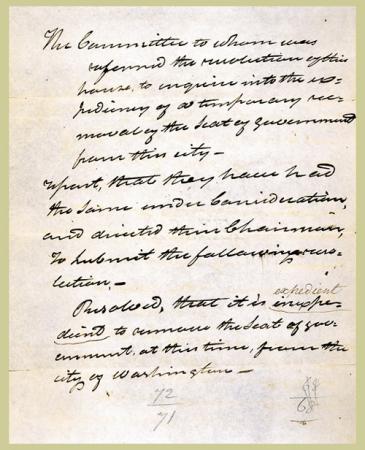 The Committee to whom was
referred the resolution of this
house, to enquire into the ex-
pediency of a temporary re-
moval of the Seat of Government
from this city—
report, that they have had
the same under Consideration,
and directed their Chairman,
to submit the following reso-
lution.—
expedient
Resolved, that it is inexpe-
dient to remove the Seat of gov-
ernment, at this time, from the
city of Washington—
72
71
68